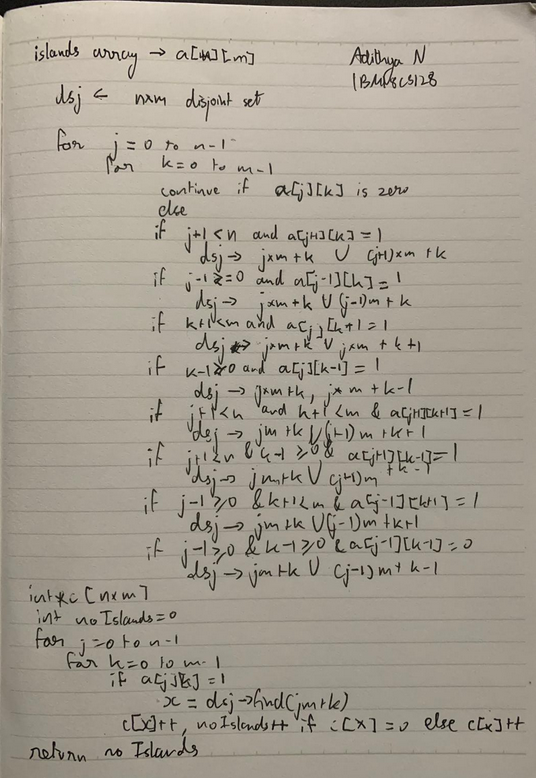 islands array → a[n][m]
Adithya N
1BM18CS128
dsj ← n×m disjoint set
for j = 0 to n-1
for k=0 to m-1
continue if a[j][k] is zero
else
if j+1<n and a[j+1][k] = 1
dsj → j×m+k ∪ (j+1)×m+k
if j-1≥=0 and a[j-1][k] = 1
dsj → j×m+k ∪ (j-1)m+k
if k+1<m and a[j][k+1 = 1
dsj → j×m+k ∪ j×m+k+1
if k-1≥0 and a[j][k-1] = 1
dsj → j×m+k, j* m+k-1
if j+1<n and k+1<m & a[j+1][k+1] = 1
dsj → jm+k ∪ (j+1)m+k+1
if j+1<n & k-1≥0 & a[j+1][k-1] = 1
dsj → jm+k ∪ (j+1)m+k-1
if j-1≥0 & k+1<m & a[j-1][k+1] = 1
dsj → jm+k ∪ (j-1)m+k+1
if j-1≥0 & k-1≥0 & a[j-1][k-1] = 0
dsj → jm+k ∪ (j-1)m+k-1
int*c [n×m]
int noIslands=0
for j=0 to n-1
for k=0 to m-1
if a[j][k] = 1
x = dsj→find(jm+k)
c[x]++, noIslands++ if c[x]=0 else c[x]++
return no Islands